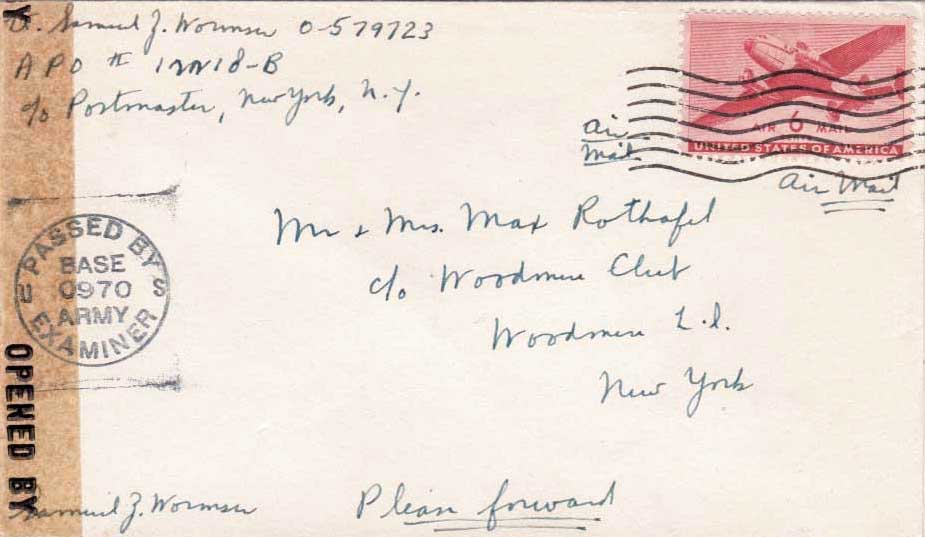 Lt. Samuel Z. Wormser O-579723
APO # 12218-B
c/o Postmaster, New York, N.Y.
AIR 6 MAIL
UNITED STATES OF AMERICA
Air
Mail
Air Mail
Mr & Mrs. Max Rothafel
c/o Woodmere Club
Woodmere L.I.
New York
PASSED BY
BASE
0970
ARMY
EXAMINER
U S
OPENED BY
Samuel Z. Wormser
Please forward